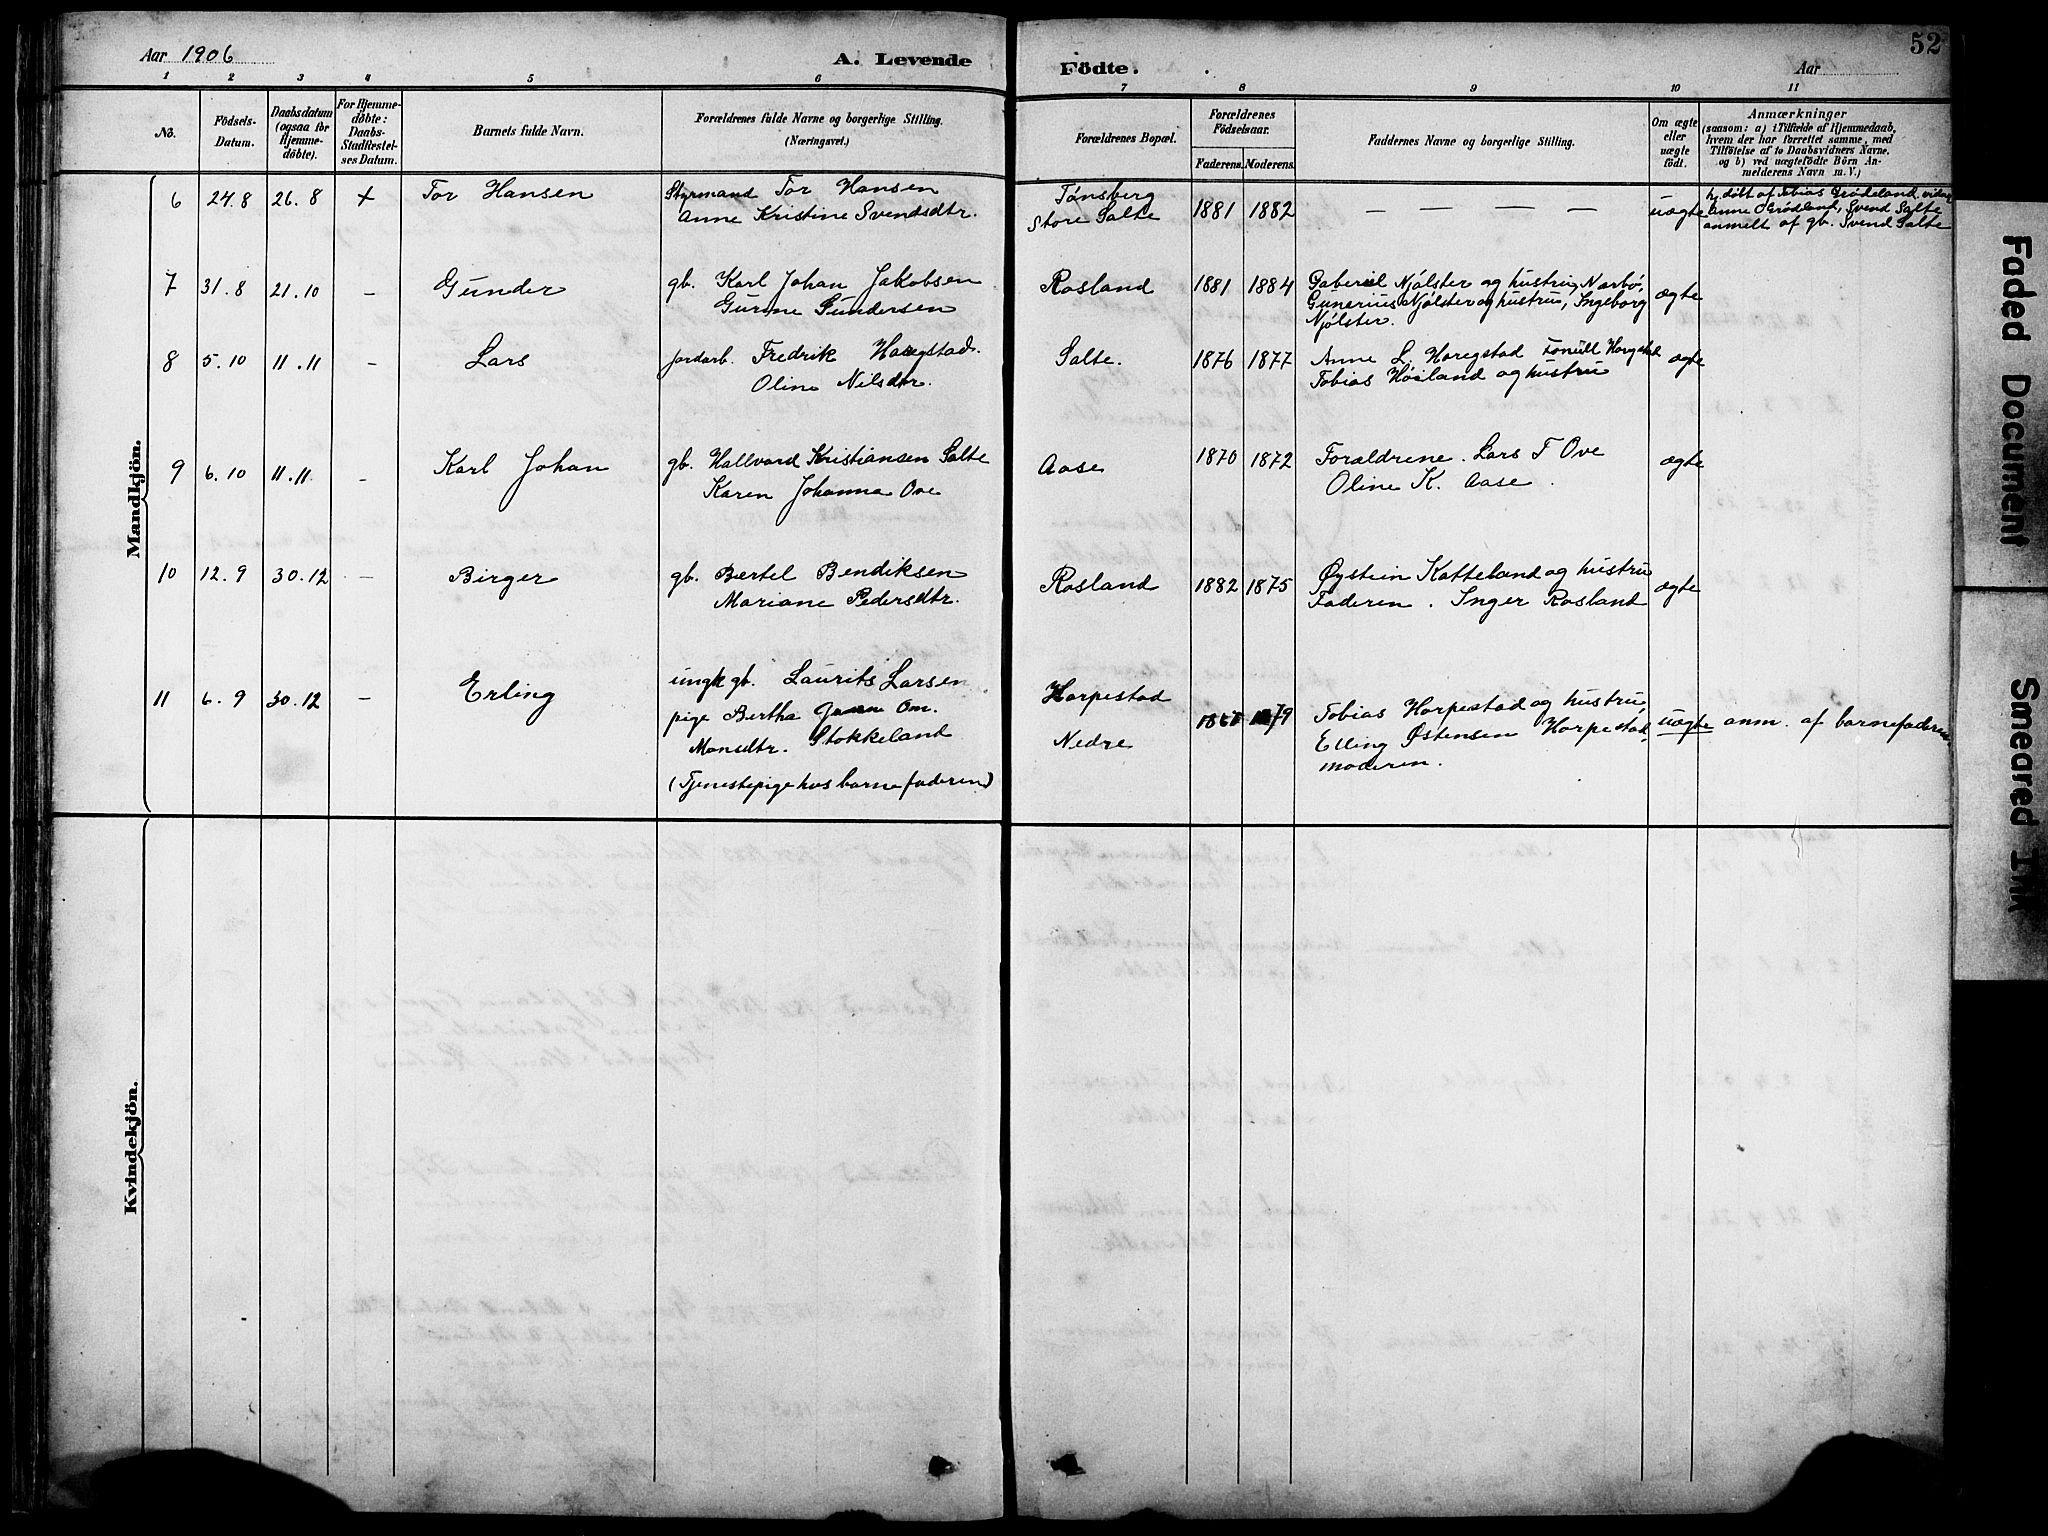 Aar 1906
A. Levende Födte.
Aar
52
1 2 3 4 5 6 7 8 9 10 11
No.
Födsels-
Datum.
Daabsdatum
(ogsaa for
Hjemme-
döbte).
For Hjemme-
döbte:
Daabs-
Stadfæstel-
ses Datum.
Barnets fulde Navn.
Forældrenes fulde Navne og borgerlige Stilling.
(Næringsvei.)
Forældrenes Bopæl.
Forældrenes
Födselsaar.
Faderens. Moderens.
Faddernes Navne og borgerlige Stilling.
Om ægte
eller
uægte
födt.
Anmærkninger
(saasom: a) i Tilfælde af Hjemmedaab,
hvem der har forrettet samme, med
Tilföielse af to Daabsvidners Navne,
og b) ved uægtefödte Börn An-
melderens Navn m. V.)
Mandkjön.
6 24.8 26.8 + Tor Hansen
Styrmand Tor Hansen
Anne Kristine Svendsdtr.
Tønsberg
Store Salte
1881 1882 — — — —
— uægte
hj.døbt af Tobias Grødeland, vidner
Anne Grødland, Svend Salte
anmelt af gb. Svend Salte
7 31.8 21.10 – Gunder
gb. Karl Johan Jakobsen
Gurine Gundersen
Rosland 1881 1884
Gabriel Njølster og hustru, Nærbø,
Gunerius Njølster og hustru, Ingeborg
Njølster.
ægte
8 5.10 11.11 – Lars
jordarb. Fredrik Haugstad.
Oline Nilsdtr.
Salte. 1876 1877
Anne L. Haregstad
Tobias Høiland og hustru
ægte
9 6.10 11.11. – Karl Johan
gb. Hallvard Kristiansen Salte
Karen Johanna Ove
Aase 1870 1872
Forældrene. Lars T Ove
Oline K. Aase.
ægte
10 12.9 30.12 – Birger
gb. Bertel Bendiksen
Mariane Pedersdtr.
Rosland 1882 1875
Øystein Katteland og hustru
Faderen. Inger Rosland
ægte
11 6.9 30.12 – Erling
ungk gb. Laurits Larsen
pige Bertha Om.
Monsdtr. Stokkeland
(Tjenestepige hos barnefaderen)
Horpestad
Nedre
1879
Tobias Horpestad og hustru,
Elling Østensen Horpestad,
moderen.
uægte anm. af barnefaderen.
Kvindekjön.
Faded Document
Smeared Ink